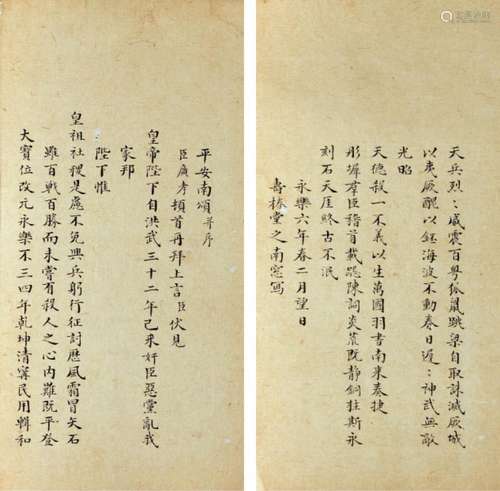 平安南頌 并序
臣廣孝頓首再拜上言臣伏見
皇帝陛下自洪武三十二年己未奸臣惡黨亂我
家邦
陛下惟
皇祖社稷是慮不免興兵躬行征討歷風霜冒矢石
雖百戰百勝而未嘗有殺人之心內難既平登
大寶位改元永樂不三四年乾坤清寧民用輯和
天兵烈:威震百粵狐鼠跳梁自取誅滅厥城
以夷厥醜以海波不動春日遲:神武無敵
光昭
天德殺一不義以生萬國羽書南來奏捷
彤墀羣臣稽首載颺陳詞炎荒既靜銅柱斯永
刻石天厓終古不泯
永樂六年春二月望日
壽椿堂之南窓寫